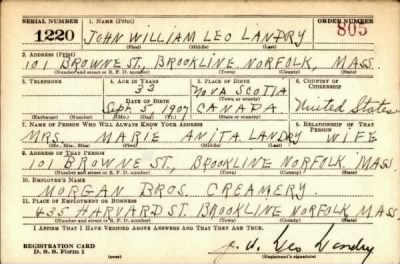 SERIAL NUMBER 1. NAME (Print) ORDER NUMBER
1220 JOHN WILLIAM LEO LANDRY 805
(First) (Middle) (Last)
2. ADDRESS (Print)
101 BROWNE ST., BROOKLINE NORFOLK, MASS.
(Number and street or R. F. D. number) (Town) (County) (State)
3. TELEPHONE 4. AGE IN YEARS 5. PLACE OF BIRTH 6. COUNTRY OF CITIZENSHIP
33 NOVA SCOTIA
DATE OF BIRTH (Town or county)
Sept 5, 1907 CANADA. United States
(Exchange) (Number) (Mo.) (Day) (Yr.) (State or country)
7. NAME OF PERSON WHO WILL ALWAYS KNOW YOUR ADDRESS 8. RELATIONSHIP OF THAT PERSON
MRS. MARIE ANITA LANDRY WIFE
(Mr., Mrs., Miss) (First) (Middle) (Last)
9. ADDRESS OF THAT PERSON
101 BROWNE ST, BROOKLINE NORFOLK MASS
(Number and street or R. F. D. number) (Town) (County) (State)
10. EMPLOYER'S NAME
MORGAN BROS. CREAMERY.
11. PLACE OF EMPLOYMENT OR BUSINESS
435 HARVARD ST. BROOKLINE NORFOLK, MASS
(Number and street or R. F. D. number) (Town) (County) (State)
I AFFIRM THAT I HAVE VERIFIED ABOVE ANSWERS AND THAT THEY ARE TRUE.
REGISTRATION CARD
D. S. S. Form 1 Leo Landry
(Registrant's signature)